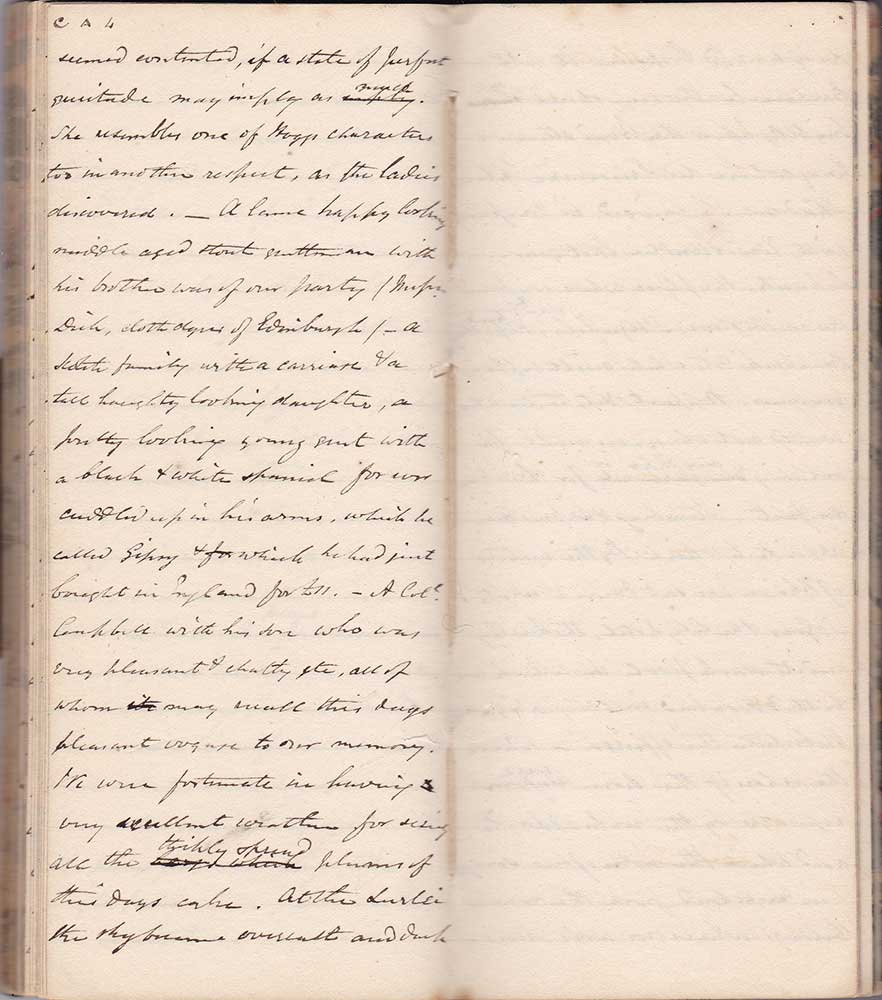 C A 4
seemed contented, if a state of perfect
quietude may imply as simply much.
She resembles one of Hoggs characters
too in another respect, as the ladies
discovered. — A lame happy looking
middle aged stout gentleman with
his brother was of our party (Messrs
Dick, cloth dyers of Edinburgh) — a
Scotch family with a carriage & a
tall haughty looking daughter, a
pretty looking young gent with
a black & white spaniel for ever
cuddled up in his arms, which he
called Gipsy & for which he had just
bought in England for £11. — A Col.
Campbell with his son who was
very pleasant & chatty etc, all of
whom may recall this days
pleasant voyage to our memory.
We were fortunate in having
very excellent weather for seeing
all the thickly spread plums of
this days cake. At the Lurlei
the sky became overcast and dark